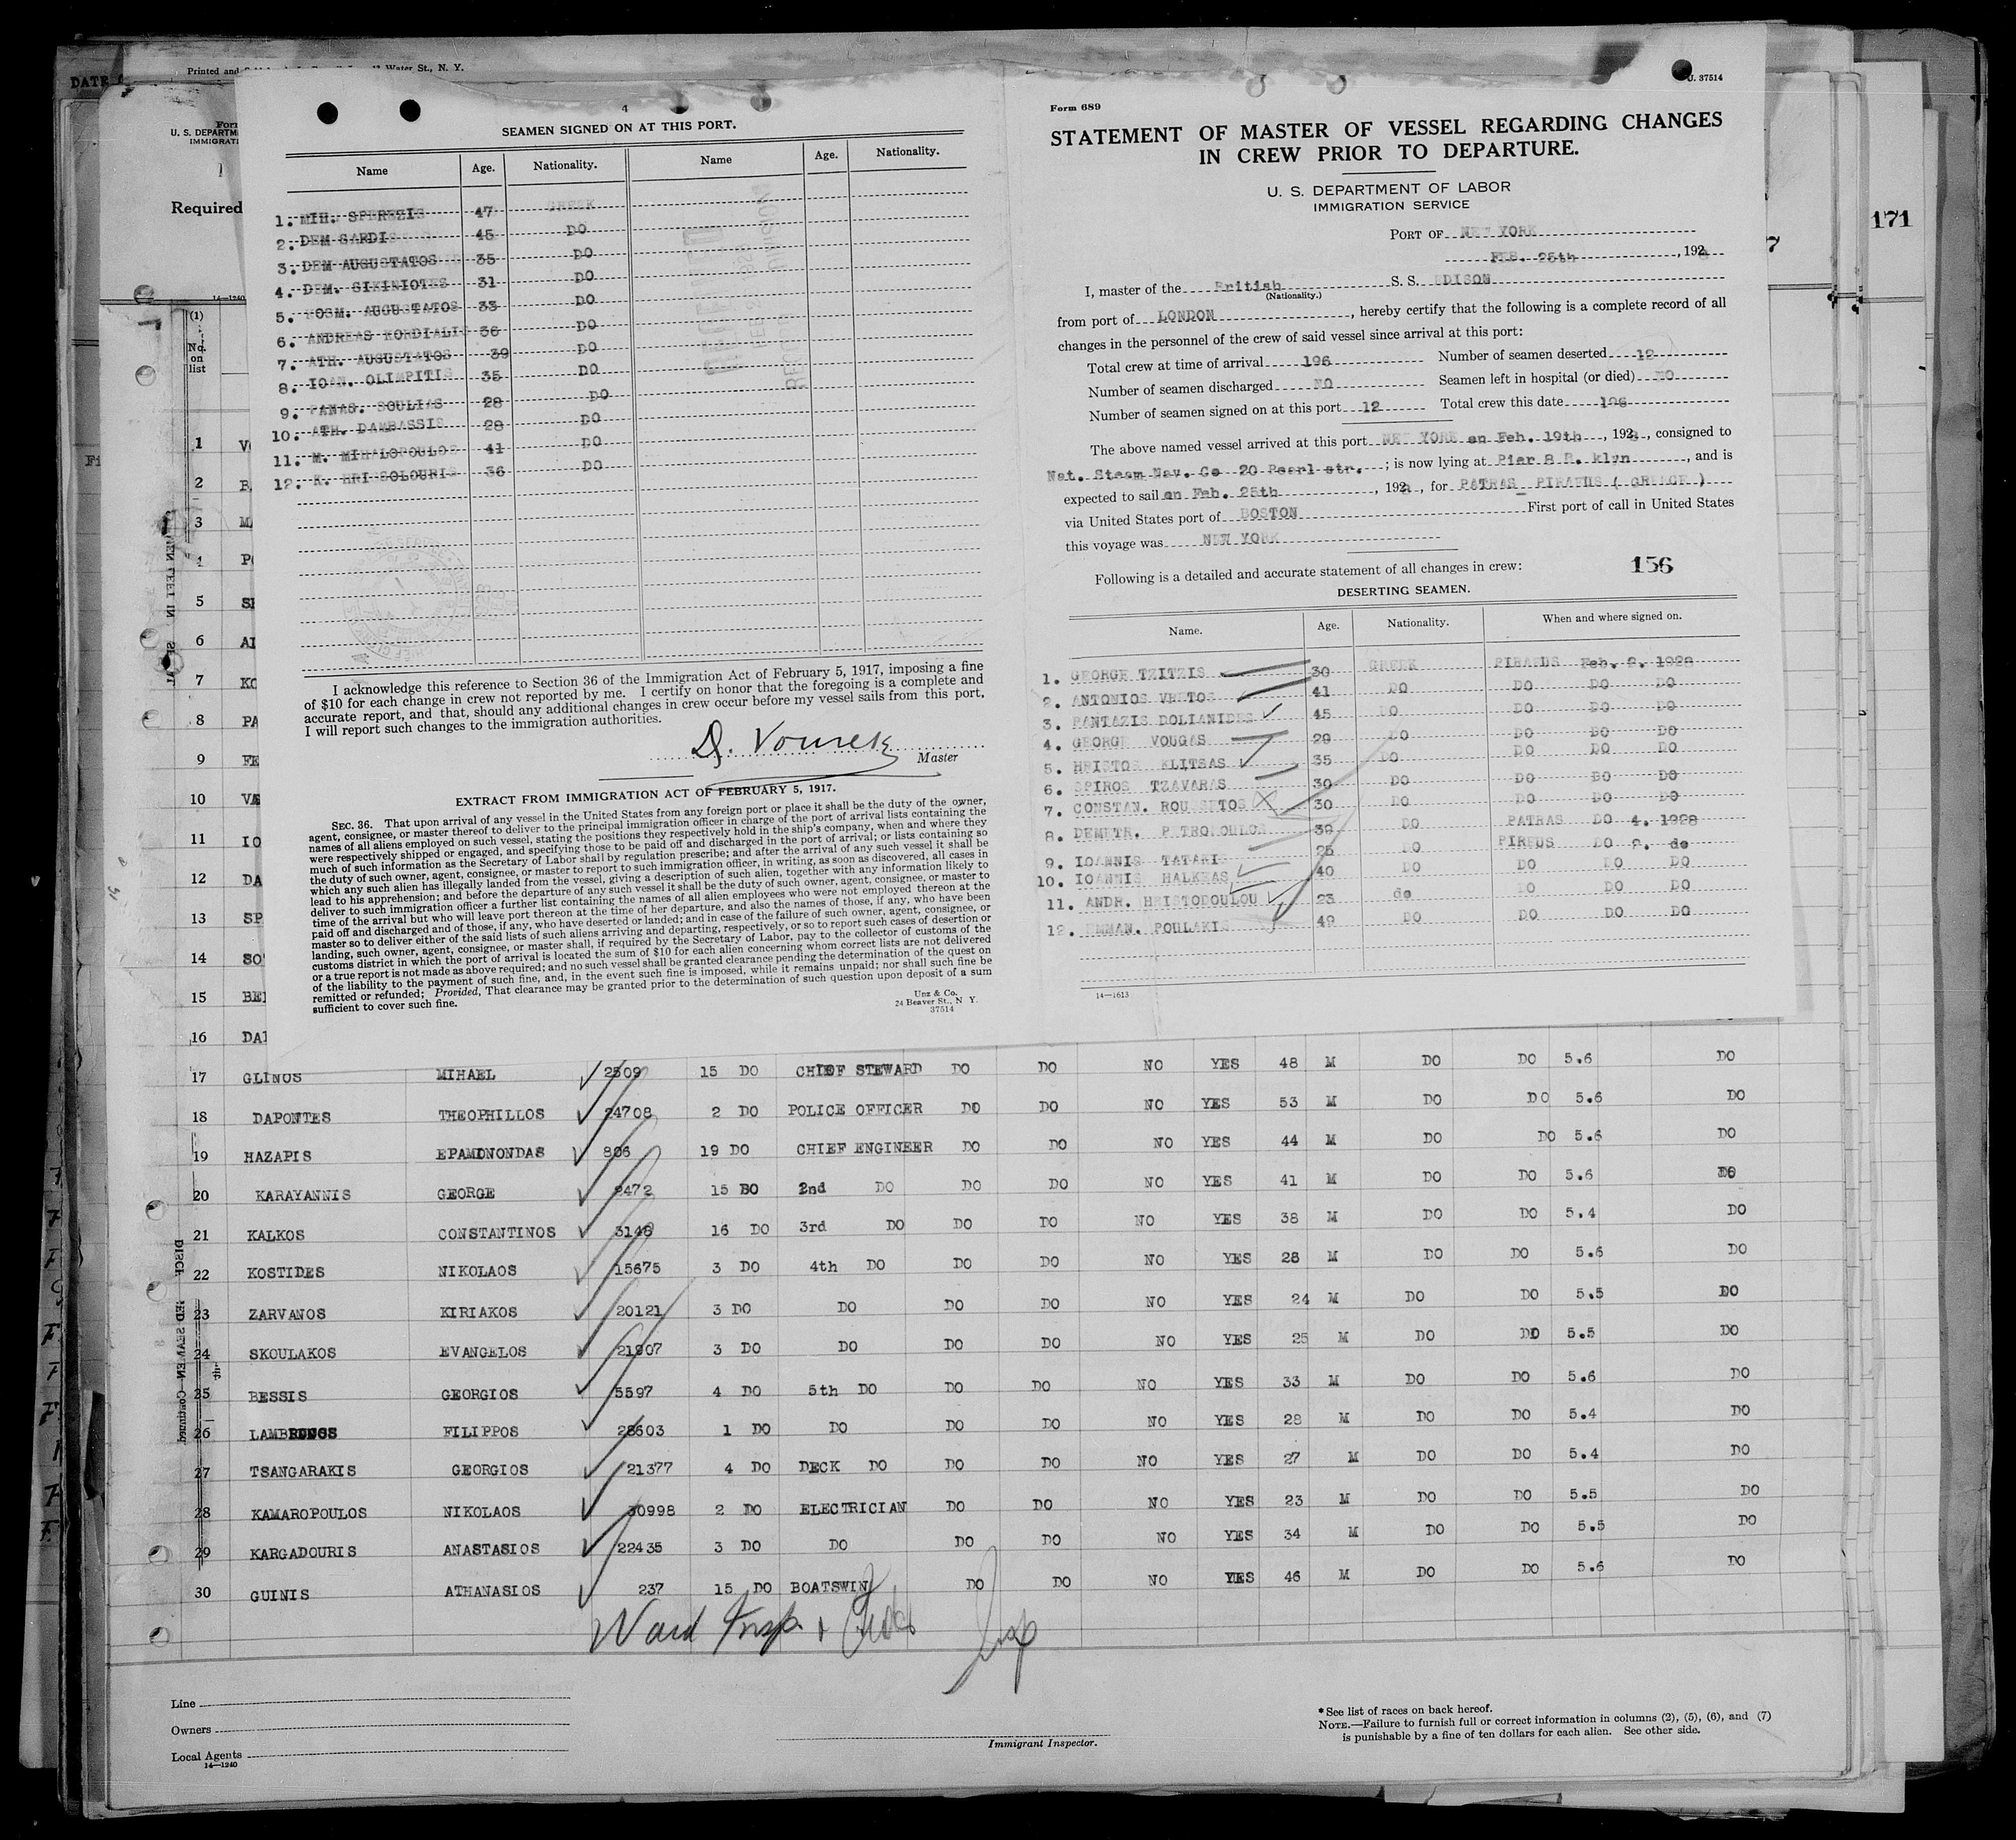 DATE
Printed and
Water St., N. Y.
171
Form
U. S. DEPARTM
IMMIGRATI
Required
14—1240
(1)
No.
on
list
4
SEAMEN SIGNED ON AT THIS PORT.
Name Age. Nationality. Name Age. Nationality.
1. MIH. SPEREZIS 47 GREEK
2. DEM SARDIS 45 DO
3. DEM AUGUSTATOS 35 DO
4. DEM. SIKINIOTES 31 DO
5. KOSM. AUGUSTATOS 33 DO
6. ANDREAS KORDIALIS 36 DO
7. ATH. AUGUSTATOS 39 DO
8. IOAN. OLIMPITIS 35 DO
9. PANAG. SOULIAS 28 DO
10. ATH. DAMBASSIS 28 DO
11. M. MIHALOPOULOS 41 DO
12. K. HRI SOLOURIS 36 DO
I acknowledge this reference to Section 36 of the Immigration Act of February 5, 1917, imposing a fine
of $10 for each change in crew not reported by me. I certify on honor that the foregoing is a complete and
accurate report, and that, should any additional changes in crew occur before my vessel sails from this port,
I will report such changes to the immigration authorities.
Master
EXTRACT FROM IMMIGRATION ACT OF FEBRUARY 5, 1917.
SEC. 36. That upon arrival of any vessel in the United States from any foreign port or place it shall be the duty of the owner,
agent, consignee, or master thereof to deliver to the principal immigration officer in charge of the port of arrival lists containing the
names of all aliens employed on such vessel, stating the positions they respectively hold in the ship's company, when and where they
were respectively shipped or engaged, and specifying those to be paid off and discharged in the port of arrival; or lists containing so
much of such information as the Secretary of Labor shall by regulation prescribe; and after the arrival of any such vessel it shall be
the duty of such owner, agent, consignee, or master to report to such immigration officer, in writing, as soon as discovered, all cases in
which any such alien has illegally landed from the vessel, giving a description of such alien, together with any information likely to
lead to his apprehension; and before the departure of any such vessel it shall be the duty of such owner, agent, consignee, or master to
deliver to such immigration officer a further list containing the names of all alien employees who were not employed thereon at the
time of the arrival but who will leave port thereon at the time of her departure, and also the names of those, if any, who have been
paid off and discharged and of those, if any, who have deserted or landed; and in case of the failure of such owner, agent, consignee, or
master so to deliver either of the said lists of such aliens arriving and departing, respectively, or so to report such cases of desertion or
landing, such owner, agent, consignee, or master shall, if required by the Secretary of Labor, pay to the collector of customs of the
customs district in which the port of arrival is located the sum of $10 for each alien concerning whom correct lists are not delivered
or a true report is not made as above required; and no such vessel shall be granted clearance pending the determination of the quest on
of the liability to the payment of such fine, and, in the event such fine is imposed, while it remains unpaid; nor shall such fine be
remitted or refunded; Provided, That clearance may be granted prior to the determination of such question upon deposit of a sum
sufficient to cover such fine.
Unz & Co.
24 Beaver St., N Y.
37514
U. 37514
Form 689
STATEMENT OF MASTER OF VESSEL REGARDING CHANGES
IN CREW PRIOR TO DEPARTURE.
U. S. DEPARTMENT OF LABOR
IMMIGRATION SERVICE
PORT OF NEW YORK
FEB. 25th, 1928
I, master of the British S. S. EDISON
(Nationality.)
from port of LONDON, hereby certify that the following is a complete record of all
changes in the personnel of the crew of said vessel since arrival at this port:
Total crew at time of arrival 196 Number of seamen deserted 12
Number of seamen discharged NO Seamen left in hospital (or died) NO
Number of seamen signed on at this port 12 Total crew this date 196
The above named vessel arrived at this port NEW YORK on Feb. 19th, 1928, consigned to
Nat. Steam Nav. Co 20 Pearl str.; is now lying at Pier 8 B. klyn, and is
expected to sail on Feb. 25th, 1928, for PATRAS_ PIRAEUS ( GREACE )
via United States port of BOSTON First port of call in United States
this voyage was NEW YORK
Following is a detailed and accurate statement of all changes in crew: 156
DESERTING SEAMEN.
Name. Age. Nationality. When and where signed on.
1. GEORGE TZITZIS 30 GREEK PIRAEUS Feb. 2. 1928
2. ANTONIOS VRETOS 41 DO DO DO DO
3. PANTAZIS DOLIANIDES 45 DO DO DO DO
4. GEORGE VOUGAS 29 DO DO DO DO
5. HRISTOS KLITSAS 35 DO DO DO DO
6. SPIROS TZAVARAS 30 DO DO DO DO
7. CONSTAN. ROUSSETOS 30 DO DO DO DO
8. DEMETR. PETROPOULOS 39 DO PATRAS DO 4. 1928
9. IOANNIS TATARIS 25 DO PIREUS DO 2. do
10. IOANNIS HALKEAS 40 DO DO DO DO
11. ANDR. HRISTODOULOU 23 do DO DO DO
12. EMMAN. POULAKIS 49 DO DO DO DO
14—1613
1 V
2 B
3 M
4 P
5 S
6 A
7 KO
8 PA
9 FE
10 VA
11 IO
12 DA
13 SP
14 SO
15 BE
16 DA
17 GLINOS MIHAEL 2509 15 DO CHIEF STEWARD DO DO NO YES 48 M DO DO 5.6 DO
18 DAPONTES THEOPHILLOS 24708 2 DO POLICE OFFICER DO DO NO YES 53 M DO DO 5.6 DO
19 HAZAPIS EPAMINONDAS 806 19 DO CHIEF ENGINEER DO DO NO YES 44 M DO DO 5.6 DO
20 KARAYANNIS GEORGE 2472 15 DO 2nd DO DO DO NO YES 41 M DO DO 5.6 DO
21 KALKOS CONSTANTINOS 3146 16 DO 3rd DO DO DO NO YES 38 M DO DO 5.4 DO
22 KOSTIDES NIKOLAOS 15675 3 DO 4th DO DO DO NO YES 28 M DO DO 5.6 DO
23 ZARVANOS KIRIAKOS 20121 3 DO DO DO DO NO YES 24 M DO DO 5.5 DO
24 SKOULAKOS EVANGELOS 21907 3 DO DO DO DO NO YES 25 M DO DO 5.5 DO
25 BESSIS GEORGIOS 5597 4 DO 5th DO DO DO NO YES 33 M DO DO 5.6 DO
26 FILIPPOS 28603 1 DO DO DO DO NO YES 28 M DO DO 5.4 DO
27 TSANGARAKIS GEORGIOS 21377 4 DO DECK DO DO DO NO YES 27 M DO DO 5.4 DO
28 KAMAROPOULOS NIKOLAOS 30998 2 DO ELECTRICIAN DO DO NO YES 23 M DO DO 5.5 DO
29 KARGADOURIS ANASTASIOS 22435 3 DO DO DO DO NO YES 34 M DO DO 5.5 DO
30 GUINIS ATHANASIOS 237 15 DO BOATSWIN DO DO NO YES 46 M DO DO 5.6 DO
Ward Insp
Line
Owners
Local Agents
14—1240
Immigrant Inspector.
*See list of races on back hereof.
NOTE.—Failure to furnish full or correct information in columns (2), (5), (6), and (7)
is punishable by a fine of ten dollars for each alien. See other side.